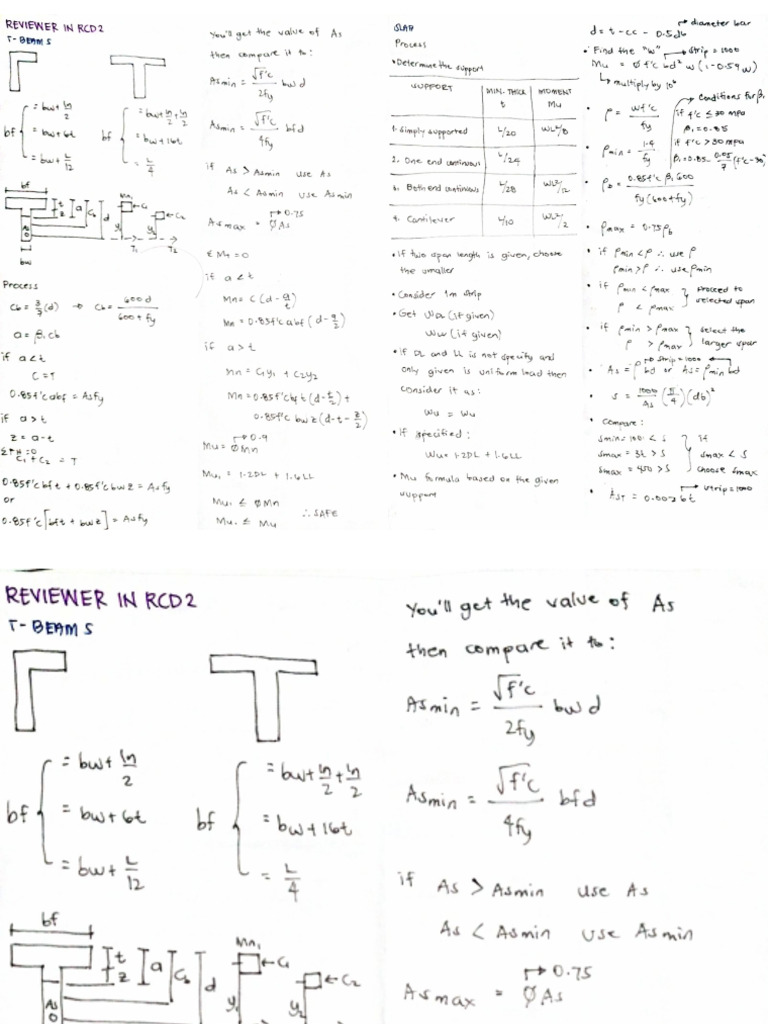 REVIEWER IN RCD2
T-BEAMS
bf { = bw + ln/2
= bw + 6t
= bw + L/12
bf { = bw + ln/2 + ln/2
= bw + 16t
= L/4
bf
t
z
a
Cb
d
As
bw
Mn1
C1
C2
y1
y2
T1
T2
Process
a = β1 Cb
Cb = 600d / 600 + fy
if a < t
C = T
0.85f'c abf = Asfy
if a > t
z = a - t
C1 + C2 = T
0.85f'c bft + 0.85f'c bwz = Asfy
or
0.85f'c [bft + bwz] = Asfy
You'll get the value of As
then compare it to:
Asmin = √f'c / 2fy bw d
Asmin = √f'c / 4fy bfd
if As > Asmin use As
As < Asmin use Asmin
0.75
Asmax = ØAs
if a < t
Mn = 0.85f'c abf (d - a/2)
if a > t
Mn = C1y1 + C2y2
Mn = 0.85f'c bft (d - t/2) +
0.85f'c bwz (d - t - z/2)
0.9
Mu = ØMn
Mu1 = 1.2DL + 1.6LL
Mu1 ≤ ØMn
Mu1 ≤ Mu
∴ SAFE
SLAB
Process
• Determine the support
SUPPORT
MIN. THICK t
MOMENT Mu
1. Simply supported
L/20
WL²/8
2. One end continuous
L/24
Both end continuous
L/28
WL²/12
4. Cantilever
L/10
WL²/2
• If two span length is given, choose
the smaller
• Consider 1m strip
• Get WDL (if given)
WLL (if given)
• If DL and LL is not specify and
only given is uniform load then
consider it as:
Wu = Wu
• If specified:
Wu = 1.2DL + 1.6LL
• Mu formula based on the given
support
diameter bar
d = t - cc - 0.5db
• Find the "w"
strip = 1000
Mu = Ø f'c bd² w (1 - 0.59w)
multiply by 10⁶
• ρ = wf'c / fy
conditions for β1
if f'c ≤ 30 mpa
β1 = 0.85
if f'c > 30 mpa
β1 = 0.85 - 0.05/7 (f'c - 30)
• ρmin = 1.4 / fy
• ρb = 0.85f'c β1 600 / fy (600 + fy)
• ρmax = 0.75ρb
• if ρmin < ρ ∴ use ρ
ρmin > ρ ∴ use ρmin
• if ρmin < ρmax
ρ < ρmax
} proceed to
selected span
• if ρmin > ρmax
ρ > ρmax
} select the
larger span
strip = 1000
• As = ρbd or As = ρmin bd
• s = 1000/As (π/4) (db)²
• Compare:
smin = 100 < s
smax = 3t > s
smax = 450 > s
} if
smax < s
choose smax
strip = 1000
• AsT = 0.002bt
REVIEWER IN RCD2
T-BEAMS
bf { = bw + ln/2
= bw + 6t
= bw + L/12
bf { = bw + ln/2 + ln/2
= bw + 16t
= L/4
bf
t
z
a
Cb
d
As
Mn1
C1
C2
y1
y2
You'll get the value of As
then compare it to:
Asmin = √f'c / 2fy bw d
Asmin = √f'c / 4fy bfd
if As > Asmin use As
As < Asmin use Asmin
0.75
Asmax = ØAs